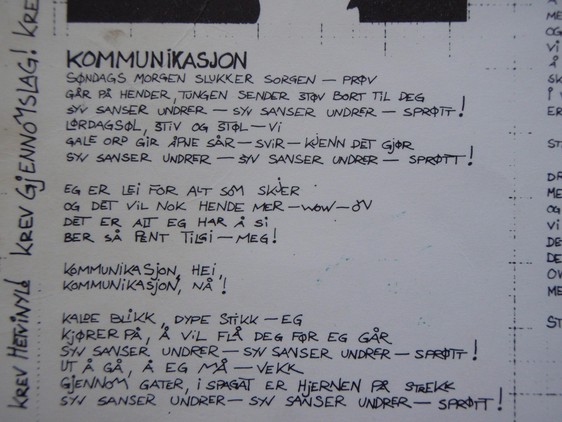 KOMMUNIKASJON
SØNDAGS MORGEN SLUKKER SORGEN — PRØV
GÅR PÅ HENDER, TUNGEN SENDER STØV BORT TIL DEG
SYV SANSER UNDRER — SYV SANSER UNDRER — SPRØTT!
LØRDAGSØL, STIV OG STØL — VI
GALE ORD GIR ÅPNE SÅR — SVIR — KJENN DET GJØR
SYV SANSER UNDRER — SYV SANSER UNDRER — SPRØTT!
EG ER LEI FOR ALT SOM SKJER
OG DET VIL NOK HENDE MER — WOW — ØV
DET ER ALT EG HAR Å SI
BER SÅ PENT TILGI — MEG!
KOMMUNIKASJON, HEI,
KOMMUNIKASJON, NÅ!
KALDE BLIKK, DYPE STIKK — EG
KJØRER PÅ, Å VIL FLÅ DEG FØR EG GÅR
SYV SANSER UNDRER — SYV SANSER UNDRER — SPRØTT!
UT Å GÅ, Å EG MÅ — VEKK
GJENNOM GATER, I SPAGAT ER HJERNEN PÅ STREKK
SYV SANSER UNDRER — SYV SANSER UNDRER — SPRØTT!
KREV HEIVINYL! KREV GJENNOMSLAG! KRE